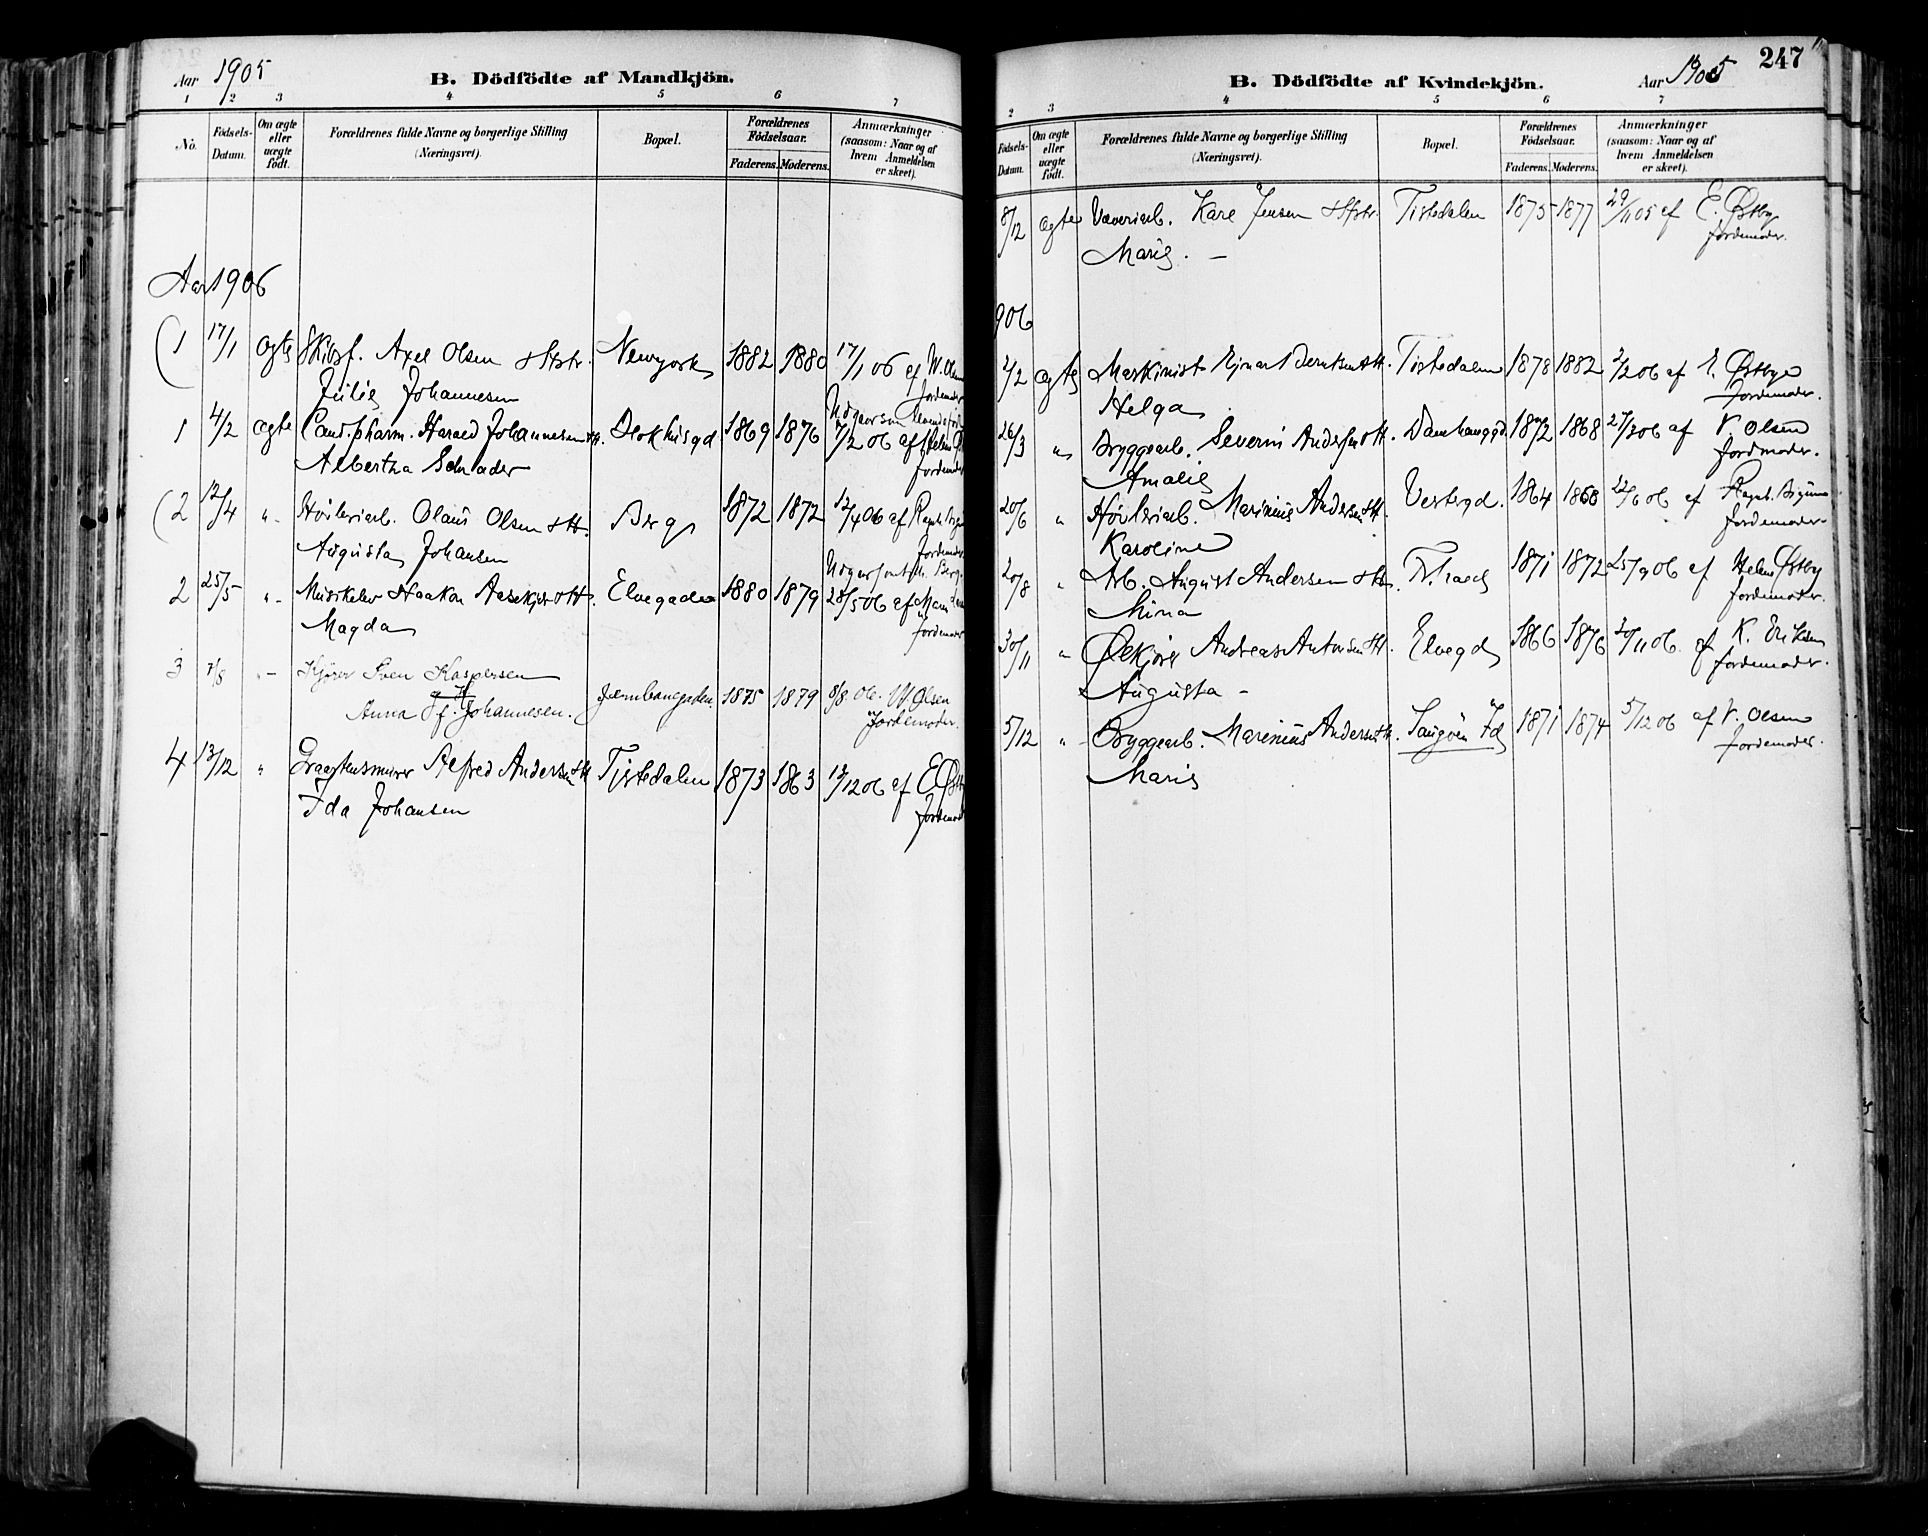 Aar 1905
B. Dödfödte af Mandkjön.
1 2 3 4 5 6 7
No. Födsels-Datum. Om ægte eller uægte födt. Forældrenes fulde Navne og borgerlige Stilling (Næringsvei). Bopæl. Forældrenes Födselsaar. Faderens. Moderens. Anmærkninger (saasom: Naar og af hvem Anmeldelsen er skeet).
Aar 1906
(1 17/1 ægte Skibsf. Axel Olsen & Hstr. Newyork 1882 1880 17/1 06 af W. Olsen
Julie Johannesen Jordemoder
1 4/2 ægte Cand. pharm. Harald Johannesen & H. 1869 1876 7/2 06 af
Albertha Schrader Jordemoder
(2 12/4 " Høvleriarb. Olaus Olsen & H. Berg 1872 1872 12/4 06 af
Augusta Johansen Jordemoder
2 25/5 " Musikelev Haakon & H. Elvegaden 1880 1879 28/5 06 af
Magda Jordemoder
3 7/8 " Kjører Sven Kaspersen
Anna f. Johannesen. Jernbanegaden. 1875 1879 8/8 06. W. Olsen
Jordemoder.
4 13/12 " Graastensmurer Alfred Andersen & H Tistedalen 1873 1863 13/12 06 af E. Østby
Ida Johansen Jordemoder
247
B. Dödfödte af Kvindekjön.
Aar 1905
2 3 4 5 6 7
Födsels-Datum. Om ægte eller uægte födt. Forældrenes fulde Navne og borgerlige Stilling (Næringsvei). Bopæl. Forældrenes Födselsaar. Faderens. Moderens. Anmærkninger (saasom: Naar og af hvem Anmeldelsen er skeet).
8/12 ægte Væveriarb. Karl Jensen & Hstr. Tistedalen 1875 1877 29/11 05 af E. Østby
Marie. — Jordemoder.
906
2/2 ægte Maskinist Ejnar Berntsen & H. Tistedalen 1878 1882 2/2 06 af E. Østbye
Helga Jordemoder.
26/3 " Bryggearb. Severin Andersen & H. 1872 1868 27/3 06 af V. Olsen
Amalie Jordmoder.
20/6 " Høvleriarb. Marinius Andersen & H. Vestergd. 1864 1868 22/6 06 af
Karoline Jordemoder
20/8 " Arb. August Andersen & H. 1871 1872 25/9 06 af Helene Østby
Mina Jordemoder.
30/11 " Andreas Antonsen & H. Elvegd 1866 1876 30/11 06. af K. Eriksen
Augusta — Jordemoder.
5/12 " Bryggearb. Marinius Andersen & H. Saugøen Id 1871 1874 5/12 06 af V. Olsen
Marie Jordemoder.